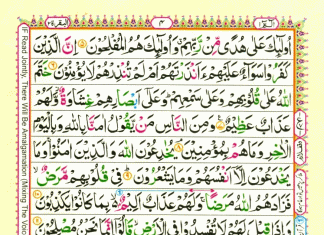 الٓمّٓ ١
٣
البقرة ٢
اُولٰٓئِكَ عَلٰی هُدًی مِّنْ رَّبِّهِمْ ۗ وَاُولٰٓئِكَ هُمُ الْمُفْلِحُوْنَ ۝ اِنَّ الَّذِیْنَ
كَفَرُوْا سَوَآءٌ عَلَیْهِمْ ءَاَنْذَرْتَهُمْ اَمْ لَمْ تُنْذِرْهُمْ لَا یُؤْمِنُوْنَ ۝ خَتَمَ
اللّٰهُ عَلٰی قُلُوْبِهِمْ وَعَلٰی سَمْعِهِمْ ؕ وَعَلٰٓی اَبْصَارِهِمْ غِشَاوَةٌ ؗ وَّلَهُمْ
عَذَابٌ عَظِیْمٌ ۝ وَمِنَ النَّاسِ مَنْ یَّقُوْلُ اٰمَنَّا بِاللّٰهِ وَبِالْیَوْمِ
الْاٰخِرِ وَمَا هُمْ بِمُؤْمِنِیْنَ ۝ یُخٰدِعُوْنَ اللّٰهَ وَالَّذِیْنَ اٰمَنُوْا ۚ وَمَا
یَخْدَعُوْنَ اِلَّاۤ اَنْفُسَهُمْ وَمَا یَشْعُرُوْنَ ۝ فِیْ قُلُوْبِهِمْ مَّرَضٌ ۙ
فَزَادَهُمُ اللّٰهُ مَرَضًا ۚ وَلَهُمْ عَذَابٌ اَلِیْمٌۢ ۙ بِمَا كَانُوْا یَكْذِبُوْنَ ۝
وَاِذَا قِیْلَ لَهُمْ لَا تُفْسِدُوْا فِی الْاَرْضِ ۙ قَالُوْۤا اِنَّمَا نَحْنُ مُصْلِحُوْنَ ۝
IF Read Jointly, There Will Be Amalgamation (Mixing The Voice